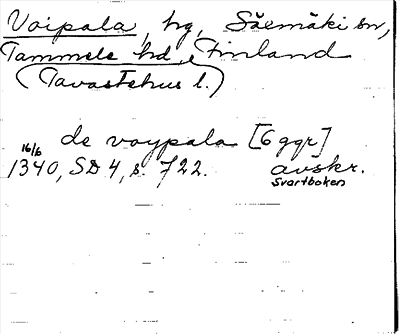 Voipala, hg, Säemäki sn,
Tammela hd, Finland
(Tavastehus l.)
de voypala [6 ggr]
16/6 1340, SD 4, s. 722. avskr.
Svartboken